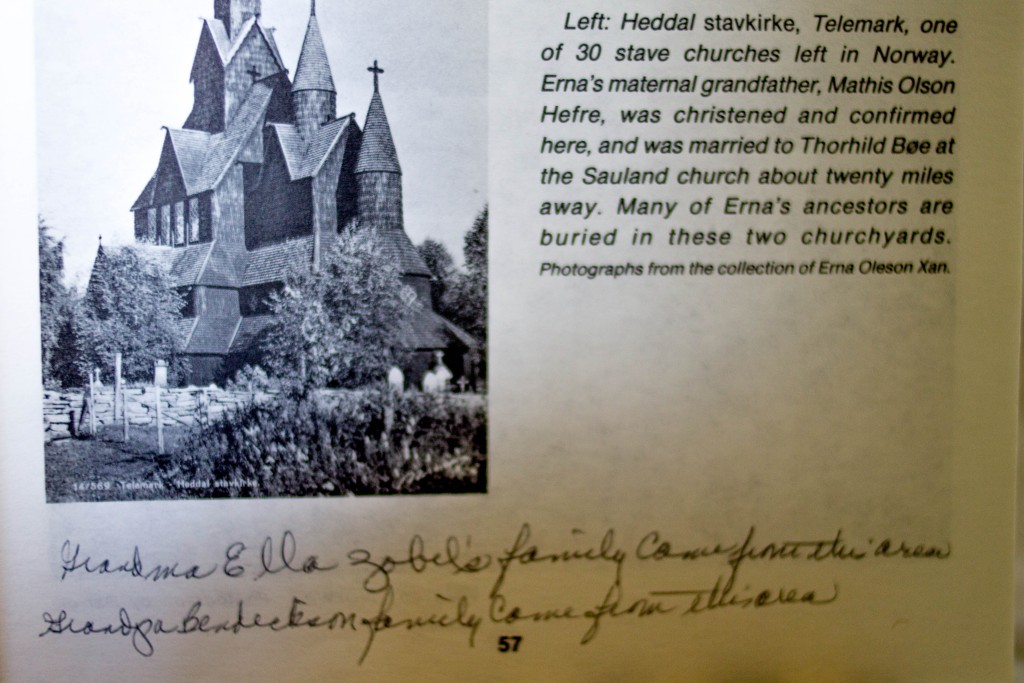 Left: Heddal stavkirke, Telemark, one
of 30 stave churches left in Norway.
Erna's maternal grandfather, Mathis Olson
Hefre, was christened and confirmed
here, and was married to Thorhild Bøe at
the Sauland church about twenty miles
away. Many of Erna's ancestors are
buried in these two churchyards.
Photographs from the collection of Erna Oleson Xan.
14/569 Telemark - Heddal stavkirke.
Grandma Ella Zobel's family Came from this area
Grandpa Bendeckson family Come from this area
57